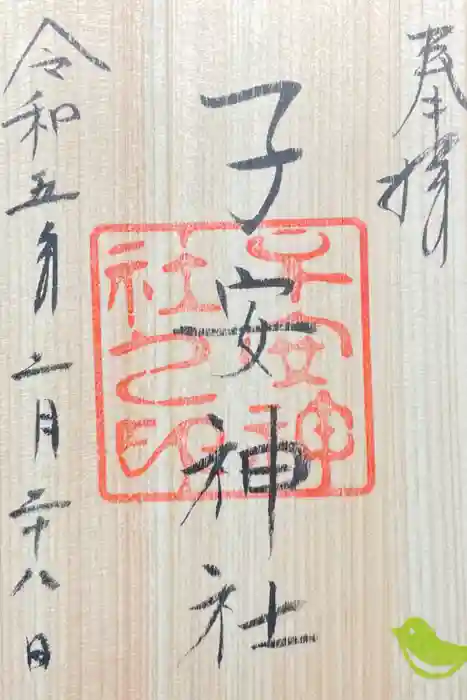 奉拝
子安神社
子安神
社之印
令和五年二月二十八日